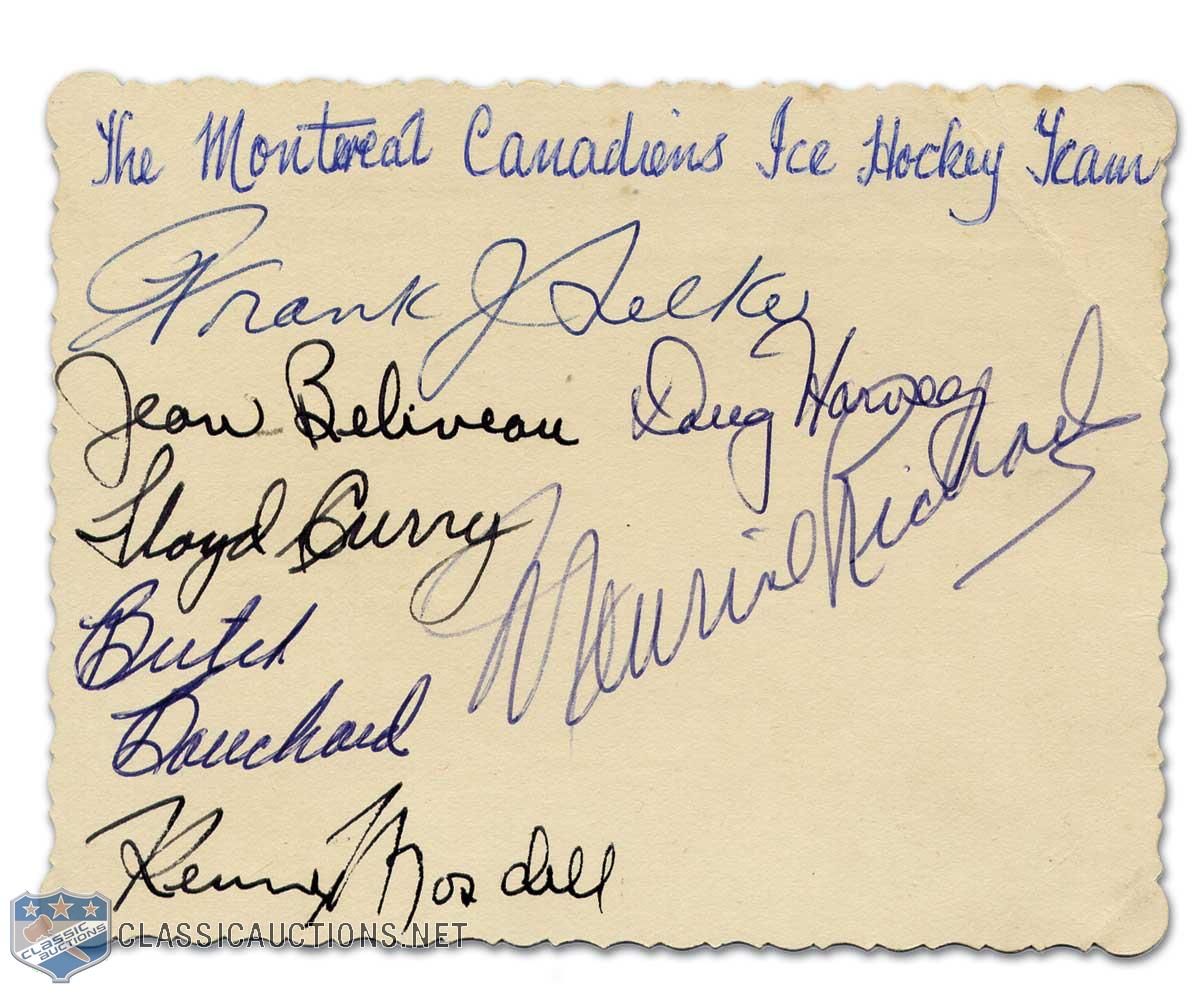 The Montereal Canadiens Ice Hockey Team
Frank J Selke
Jean Beliveau
Doug Harvey
Floyd Curry
Maurice Richard
Butch
Bouchard
Kenny Mosdell
CLASSIC
AUCTIONS
CLASSICAUCTIONS.NET